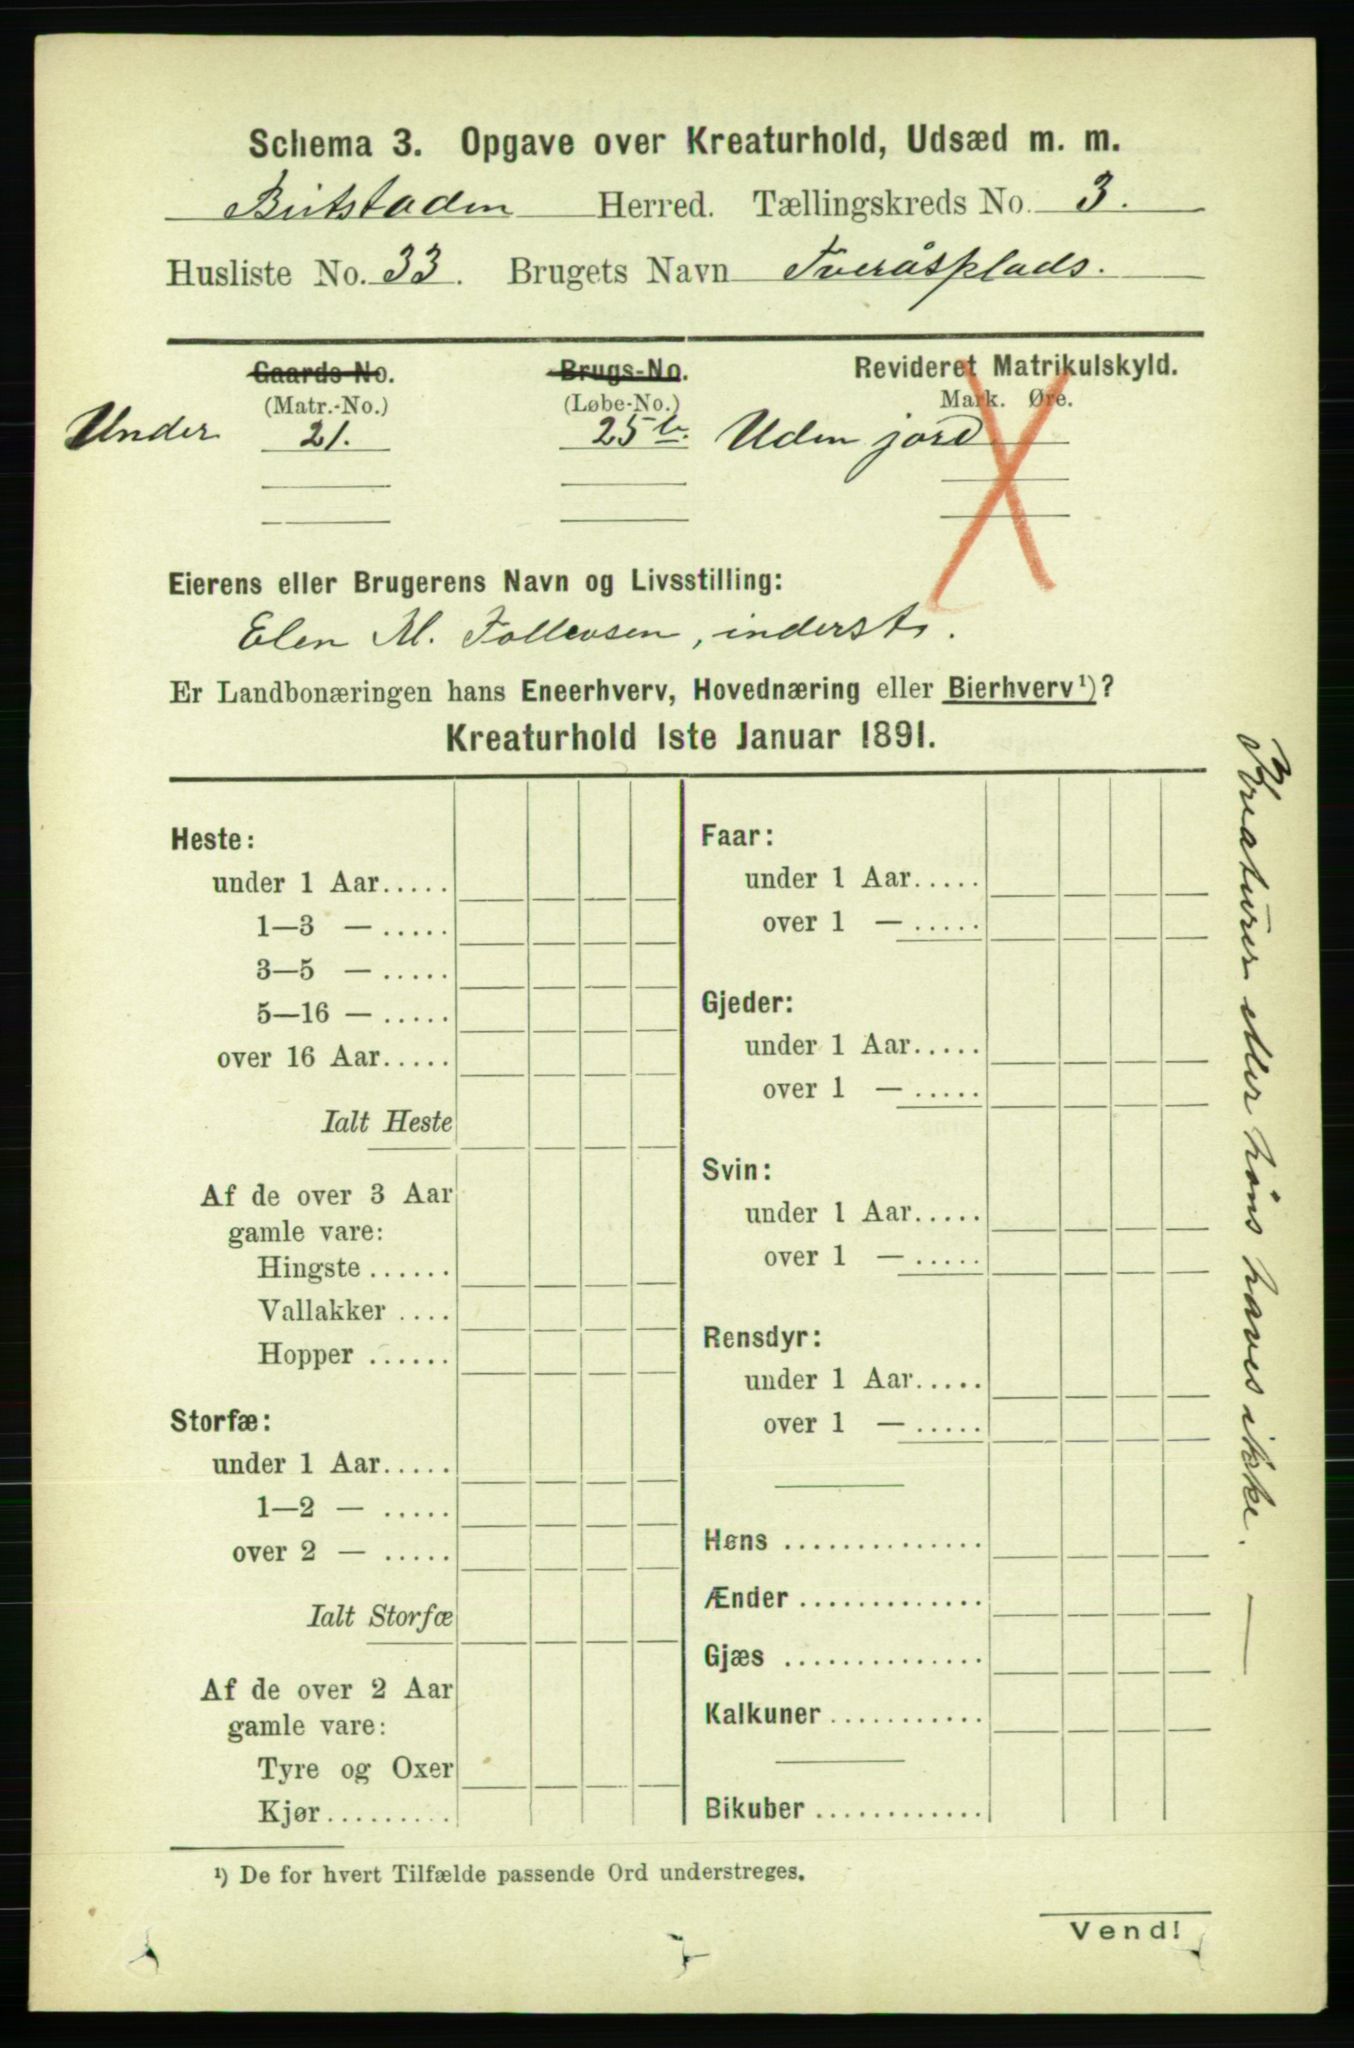 Schema 3. Opgave over Kreaturhold, Udsæd m. m.
Beitstaden Herred. Tællingskreds No. 3.
Husliste No. 33. Brugets Navn Tveråsplads.
Gaards-No. Brugs-No. Revideret Matrikulskyld.
(Matr.-No.) (Løbe-No.) Mark. Øre.
Under 21. 25 b. Uden jord
Eierens eller Brugerens Navn og Livsstilling:
Elen M. Tollevsen, inderst.
Er Landbonæringen hans Eneerhverv, Hovednæring eller Bierhverv¹)?
Kreaturhold 1ste Januar 1891.
Heste:
under 1 Aar.....
1—3 — .....
3—5 — .....
5—16 — .....
over 16 Aar.....
Ialt Heste
Af de over 3 Aar
gamle vare:
Hingste ......
Vallakker ....
Hopper ......
Storfæ:
under 1 Aar.....
1—2 — .....
over 2 — .....
Ialt Storfæ
Af de over 2 Aar
gamle vare:
Tyre og Oxer
Kjør.........
Faar:
under 1 Aar.....
over 1 — .....
Gjeder:
under 1 Aar.....
over 1 — .....
Svin:
under 1 Aar.....
over 1 — .....
Rensdyr:
under 1 Aar.....
over 1 — .....
Høns ..............
Ænder .............
Gjæs ..............
Kalkuner ...........
Bikuber ............
Kreaturer eller høns haves ikke. —
¹) De for hvert Tilfælde passende Ord understreges.
Vend!